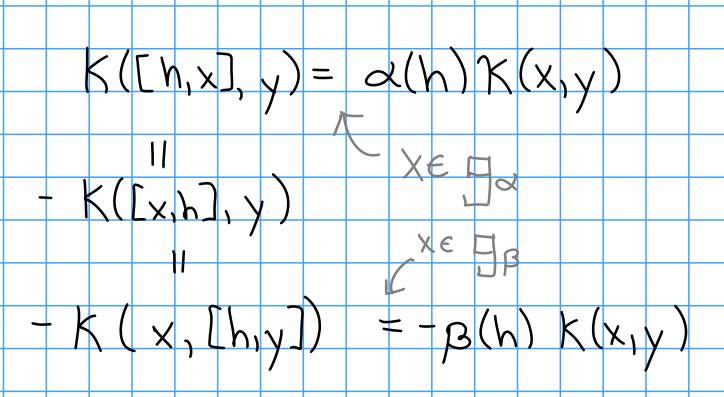 K([h,x],y) = α(h) K(x,y)
x ∈ 𝔤α
=
- K([x,h],y)
x ∈ 𝔤β
=
- K(x,[h,y]) = -β(h) K(x,y)